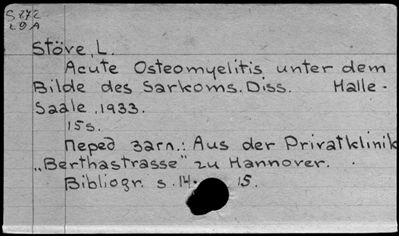 S 272
29A
Stöve, L.
Acute Osteomyelitis unter dem
Bilde des Sarkoms. Diss. Halle-
Saale, 1933.
15s.
Перед загл.: Aus der Privatklinik
„Berthastrasse" zu Hannover.
Bibliogr. s. 14-15.